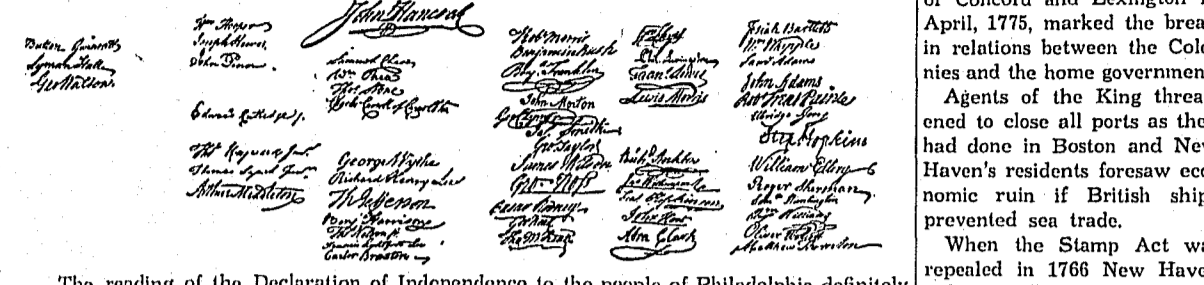 Button Gwinnett
Lyman Hall
Geo Walton.
Wm Hooper
Joseph Hewes,
John Penn
Edward Rutledge /.
Thos Heyward Junr.
Thomas Lynch Junr.
Arthur Middleton
John Hancock
Samuel Chase
Wm Paca
Thos Stone
Charles Carroll of Carrollton
George Wythe
Richard Henry Lee
Th Jefferson
Benj Harrison
Thos Nelson jr.
Francis Lightfoot Lee
Carter Braxton
Robt Morris
Benjamin Rush
Benj. Franklin
John Morton
Geo Clymer
Jas. Smith
Geo. Taylor
James Wilson
Geo. Ross
Caesar Rodney
Geo Read
Tho M:Kean
Wm Floyd
Phil. Livingston
Frans. Lewis
Lewis Morris
Richd. Stockton
Jno Witherspoon
Fras. Hopkinson
John Hart
Abra Clark
Josiah Bartlett
Wm Whipple
Saml Adams
John Adams
Robt Treat Paine
Elbridge Gerry
Step. Hopkins
William Ellery
Roger Sherman
Saml Huntington
Wm Williams
Oliver Wolcott
Matthew Thornton
The reading of the Declaration of Independence to the people of Philadelphia definitely
of Concord and Lexington
April, 1775, marked the brea
in relations between the Colo
nies and the home governmen
Agents of the King threa
ened to close all ports as the
had done in Boston and Ne
Haven's residents foresaw eco
nomic ruin if British ship
prevented sea trade.
When the Stamp Act wa
repealed in 1766 New Have